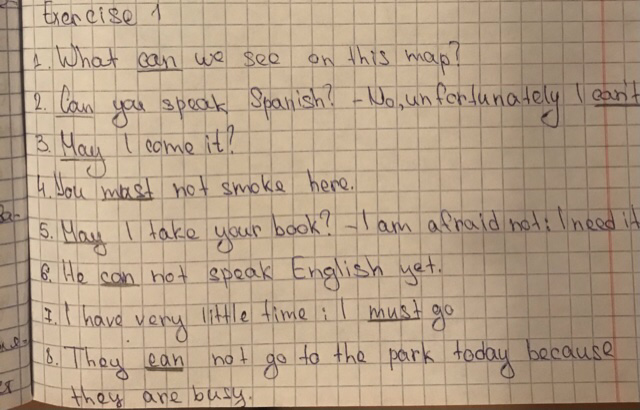 Exercise 1
1. What can we see on this map?
2. Can you speak Spanish? - No, unfortunately I can't
3. May I come it?
4. You mast not smoke here.
5. May I take your book? - I am afraid not: I need it
6. He can not speak English yet.
7. I have very little time: I must go
8. They can not go to the park today because
they are busy.